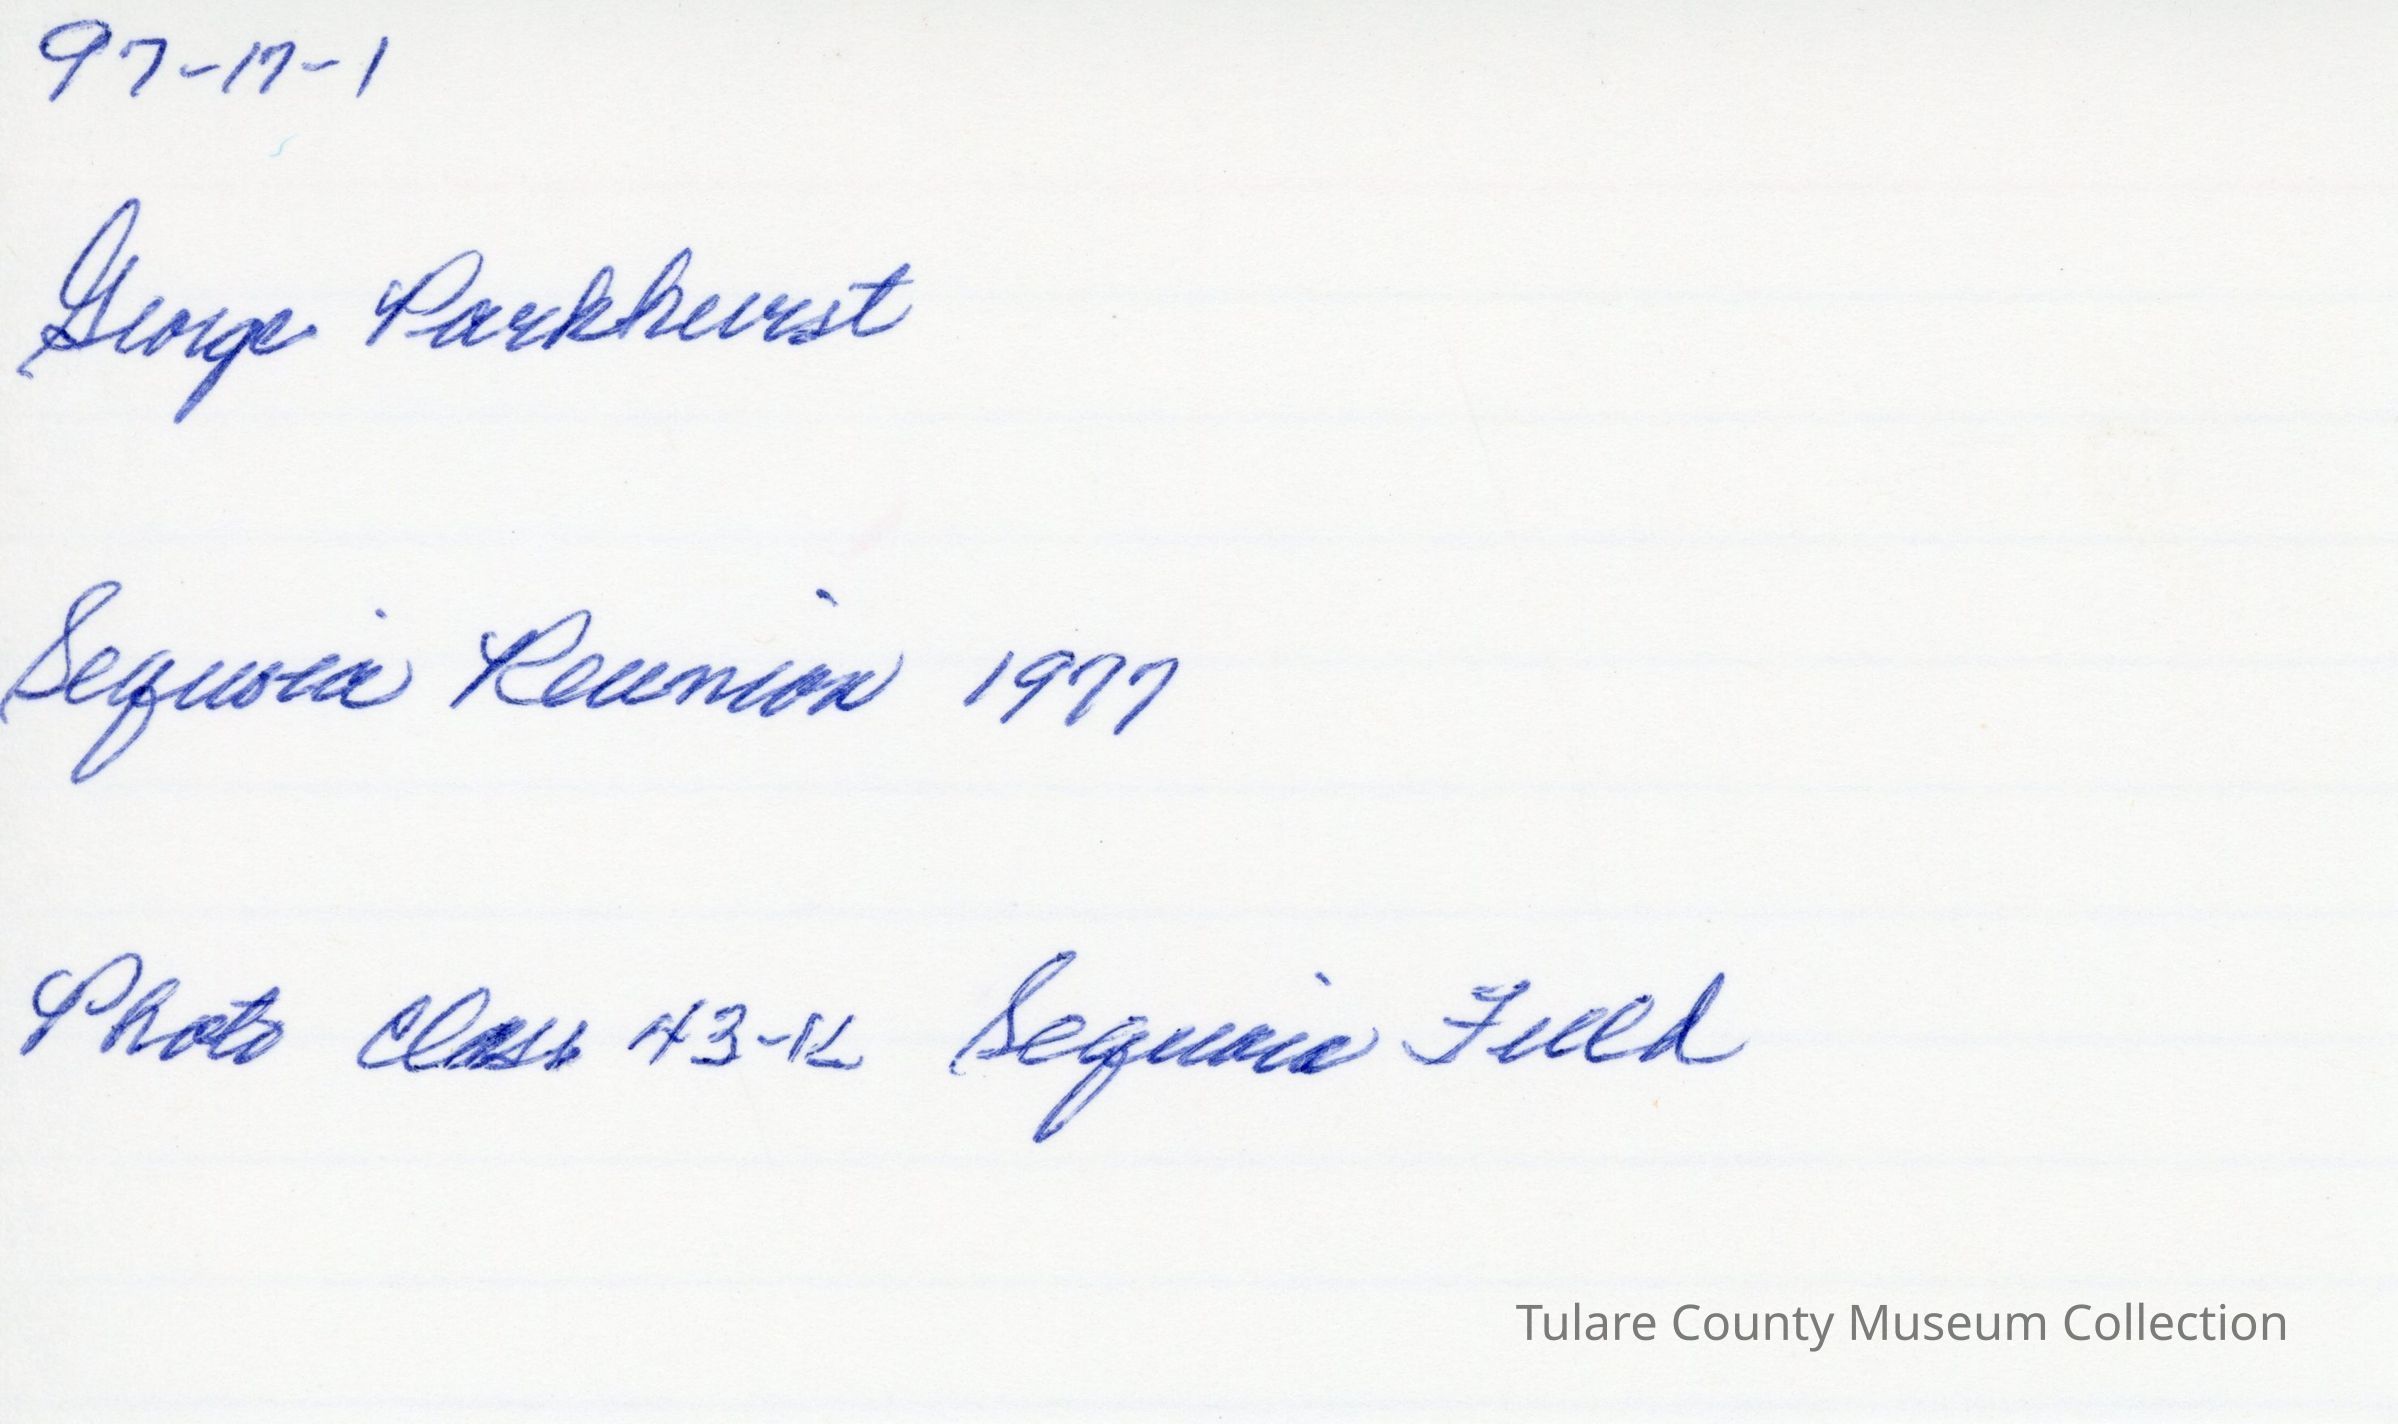 97-17-1
George Parkhurst
Sequoia Reunion 1977
Photo Class 43-K Sequoia Field
Tulare County Museum Collection